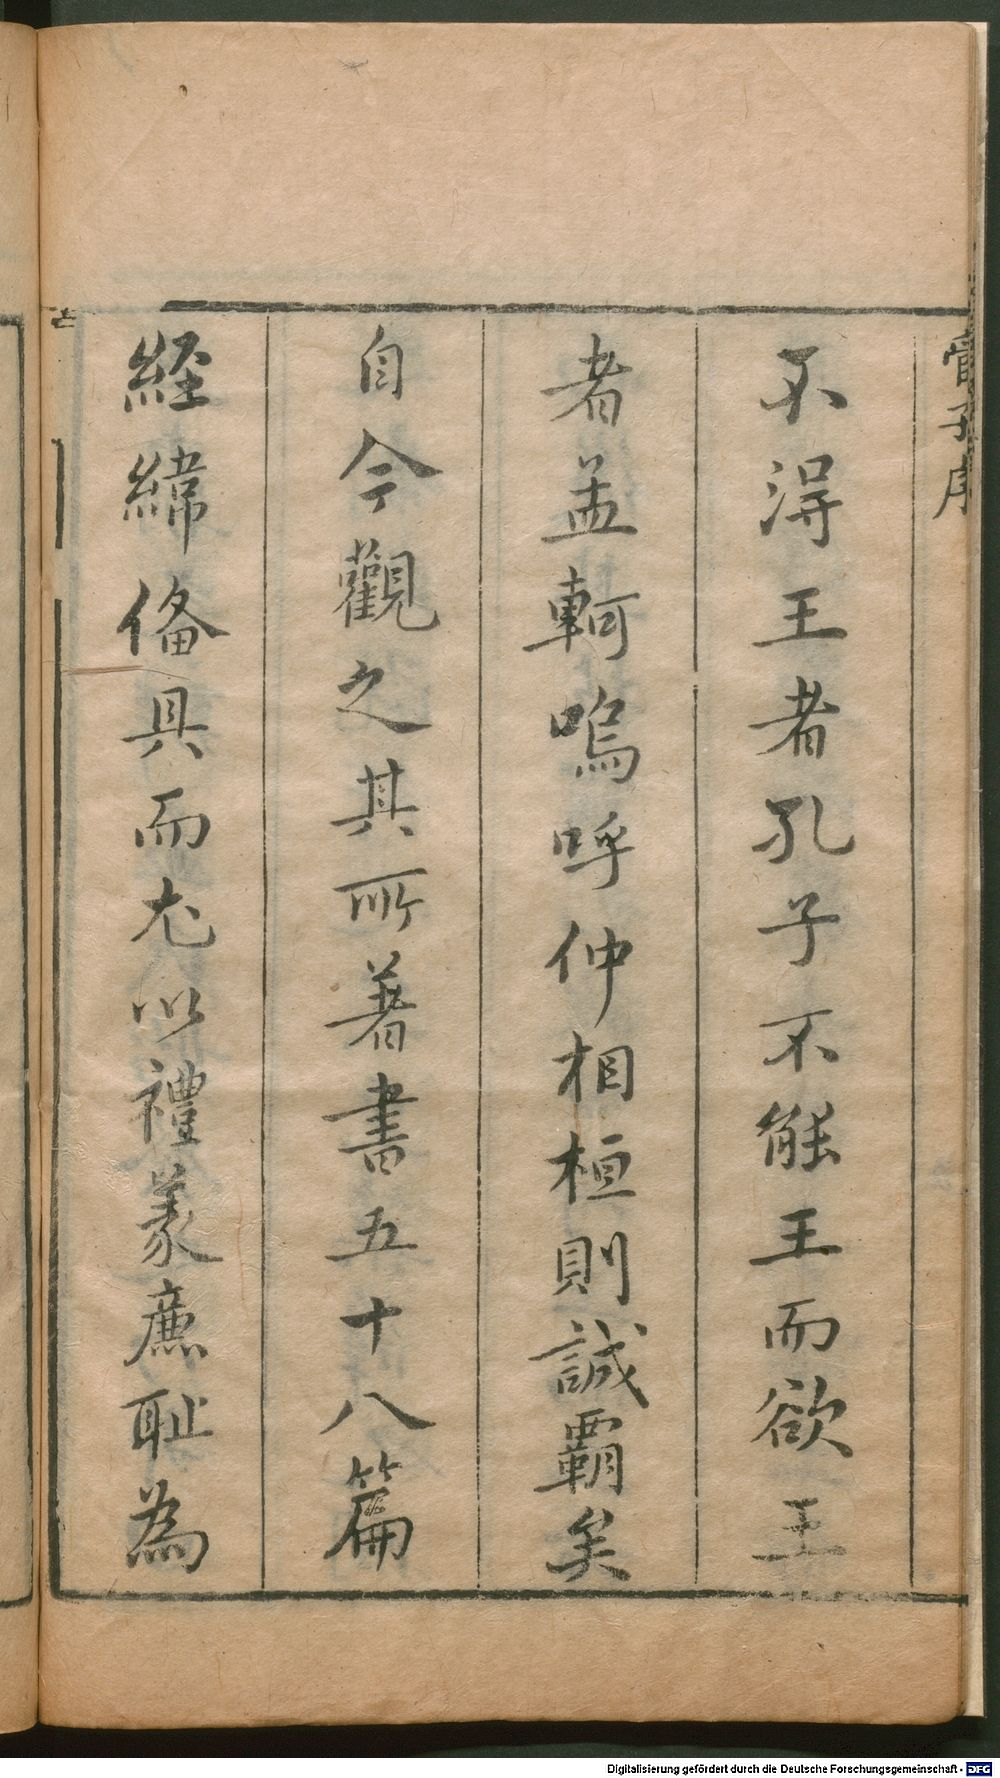 管子序
不得王者孔子不能王而欲王
者孟軻嗚呼仲相桓則誠霸矣
自今觀之其所著書五十八篇
経緯俻具而尤以禮義廉耻為
Digitalisierung gefördert durch die Deutsche Forschungsgemeinschaft - DFG